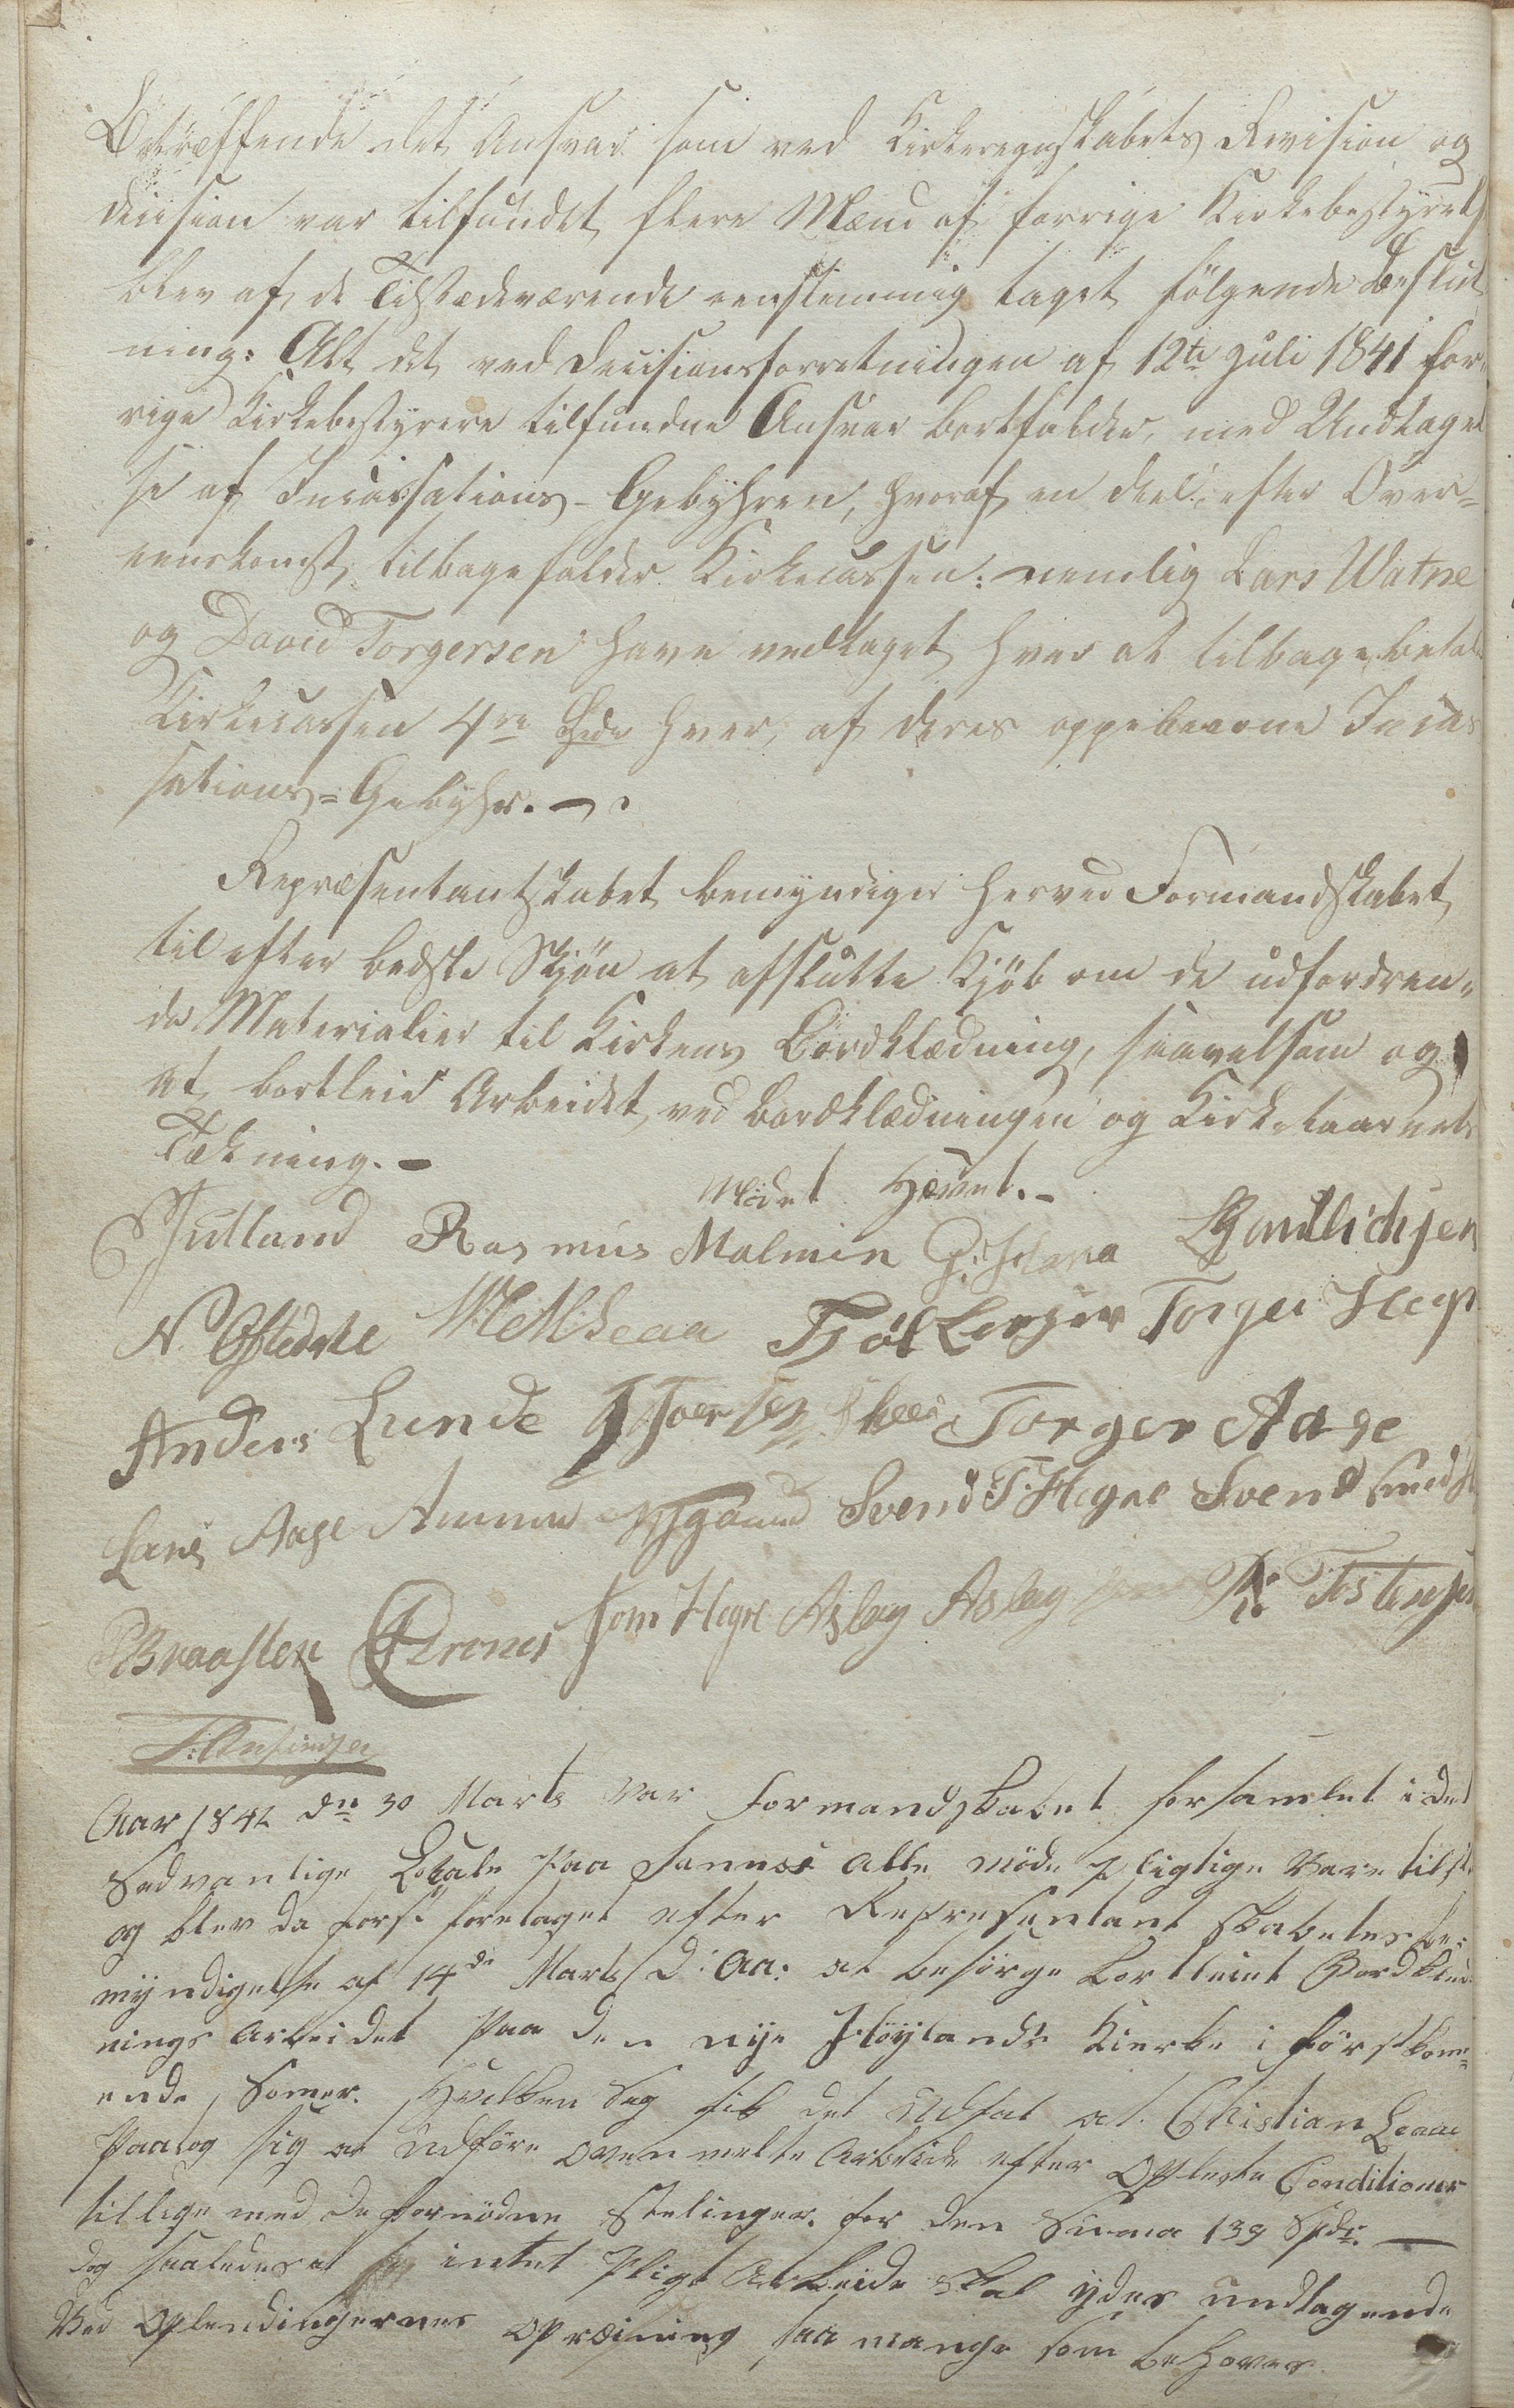 Betræffende det Ansvar som ved Kirkeregnskabets Revision og
Decision var tilfundet flere Mænd af forrige Kirkebestyrels
blev af de Tilstedeværende eenstemmig taget følgende Beslut
ning: Alt det ved Decisionsforretningen af 12te Juli 1841 for-
rige Kirkebestyrere tilfundne Ansvar bortfalder, med Undtagel
se af Incassations-Gebyhren, hvoraf en deel, efter Over-
eenskomst, tilbagefalder Kirkecassen: nemlig Lars Watne
og David Torgersen have vedtaget hver at tilbagebetale
Kirkecassen 4re Spd hver, af deres oppebaarne Incas
sations-Gebyhr. —
Repræsentantskabet bemyndiger herved Formandskabet
til efter bedste Skjøn at afslutte Kjøb om de udfordren-
de Materialier til Kirkens Bordklædning, saavelsom og
at bortleie Arbeidet ved Bordklædningen og Kirketaarnets
Tækning. —
Mödet Hævet. —
Jutland Rasmus Malmin
N Osledahl Tjöl Torger
Anders Lunde Torger Aase
Lars Aase Svend T. Hogne Svend
Braasten Hogne Aslag Aslag Tostensen

Aar 1842 dn 30 Marts var Formandskabet forsamlet i det
Sedvanlige Lokale paa Sannes alle möde pligtige vare tilst
og blev da først foretaget efter Representantskabetes be-
myndigelse af 14de Marts D: Aa: at besörge bortleiet Bordklæd
nings Arbeidet paa den nye Höylands Kierke i förstkom-
ende Somer. Hvilken Sag fik det Udfal at Christian Leaae
Paatog sig at Udföre ovenmelte Arbeide efter Opleste Conditioner
tillige med de fornödne Stelinger. for den Summa 139 Spdr. —
dog saaledes at intet Pligt Arbeide skal ydes undtagende
Ved Oplendingernes Opræisning saa mange som behöves